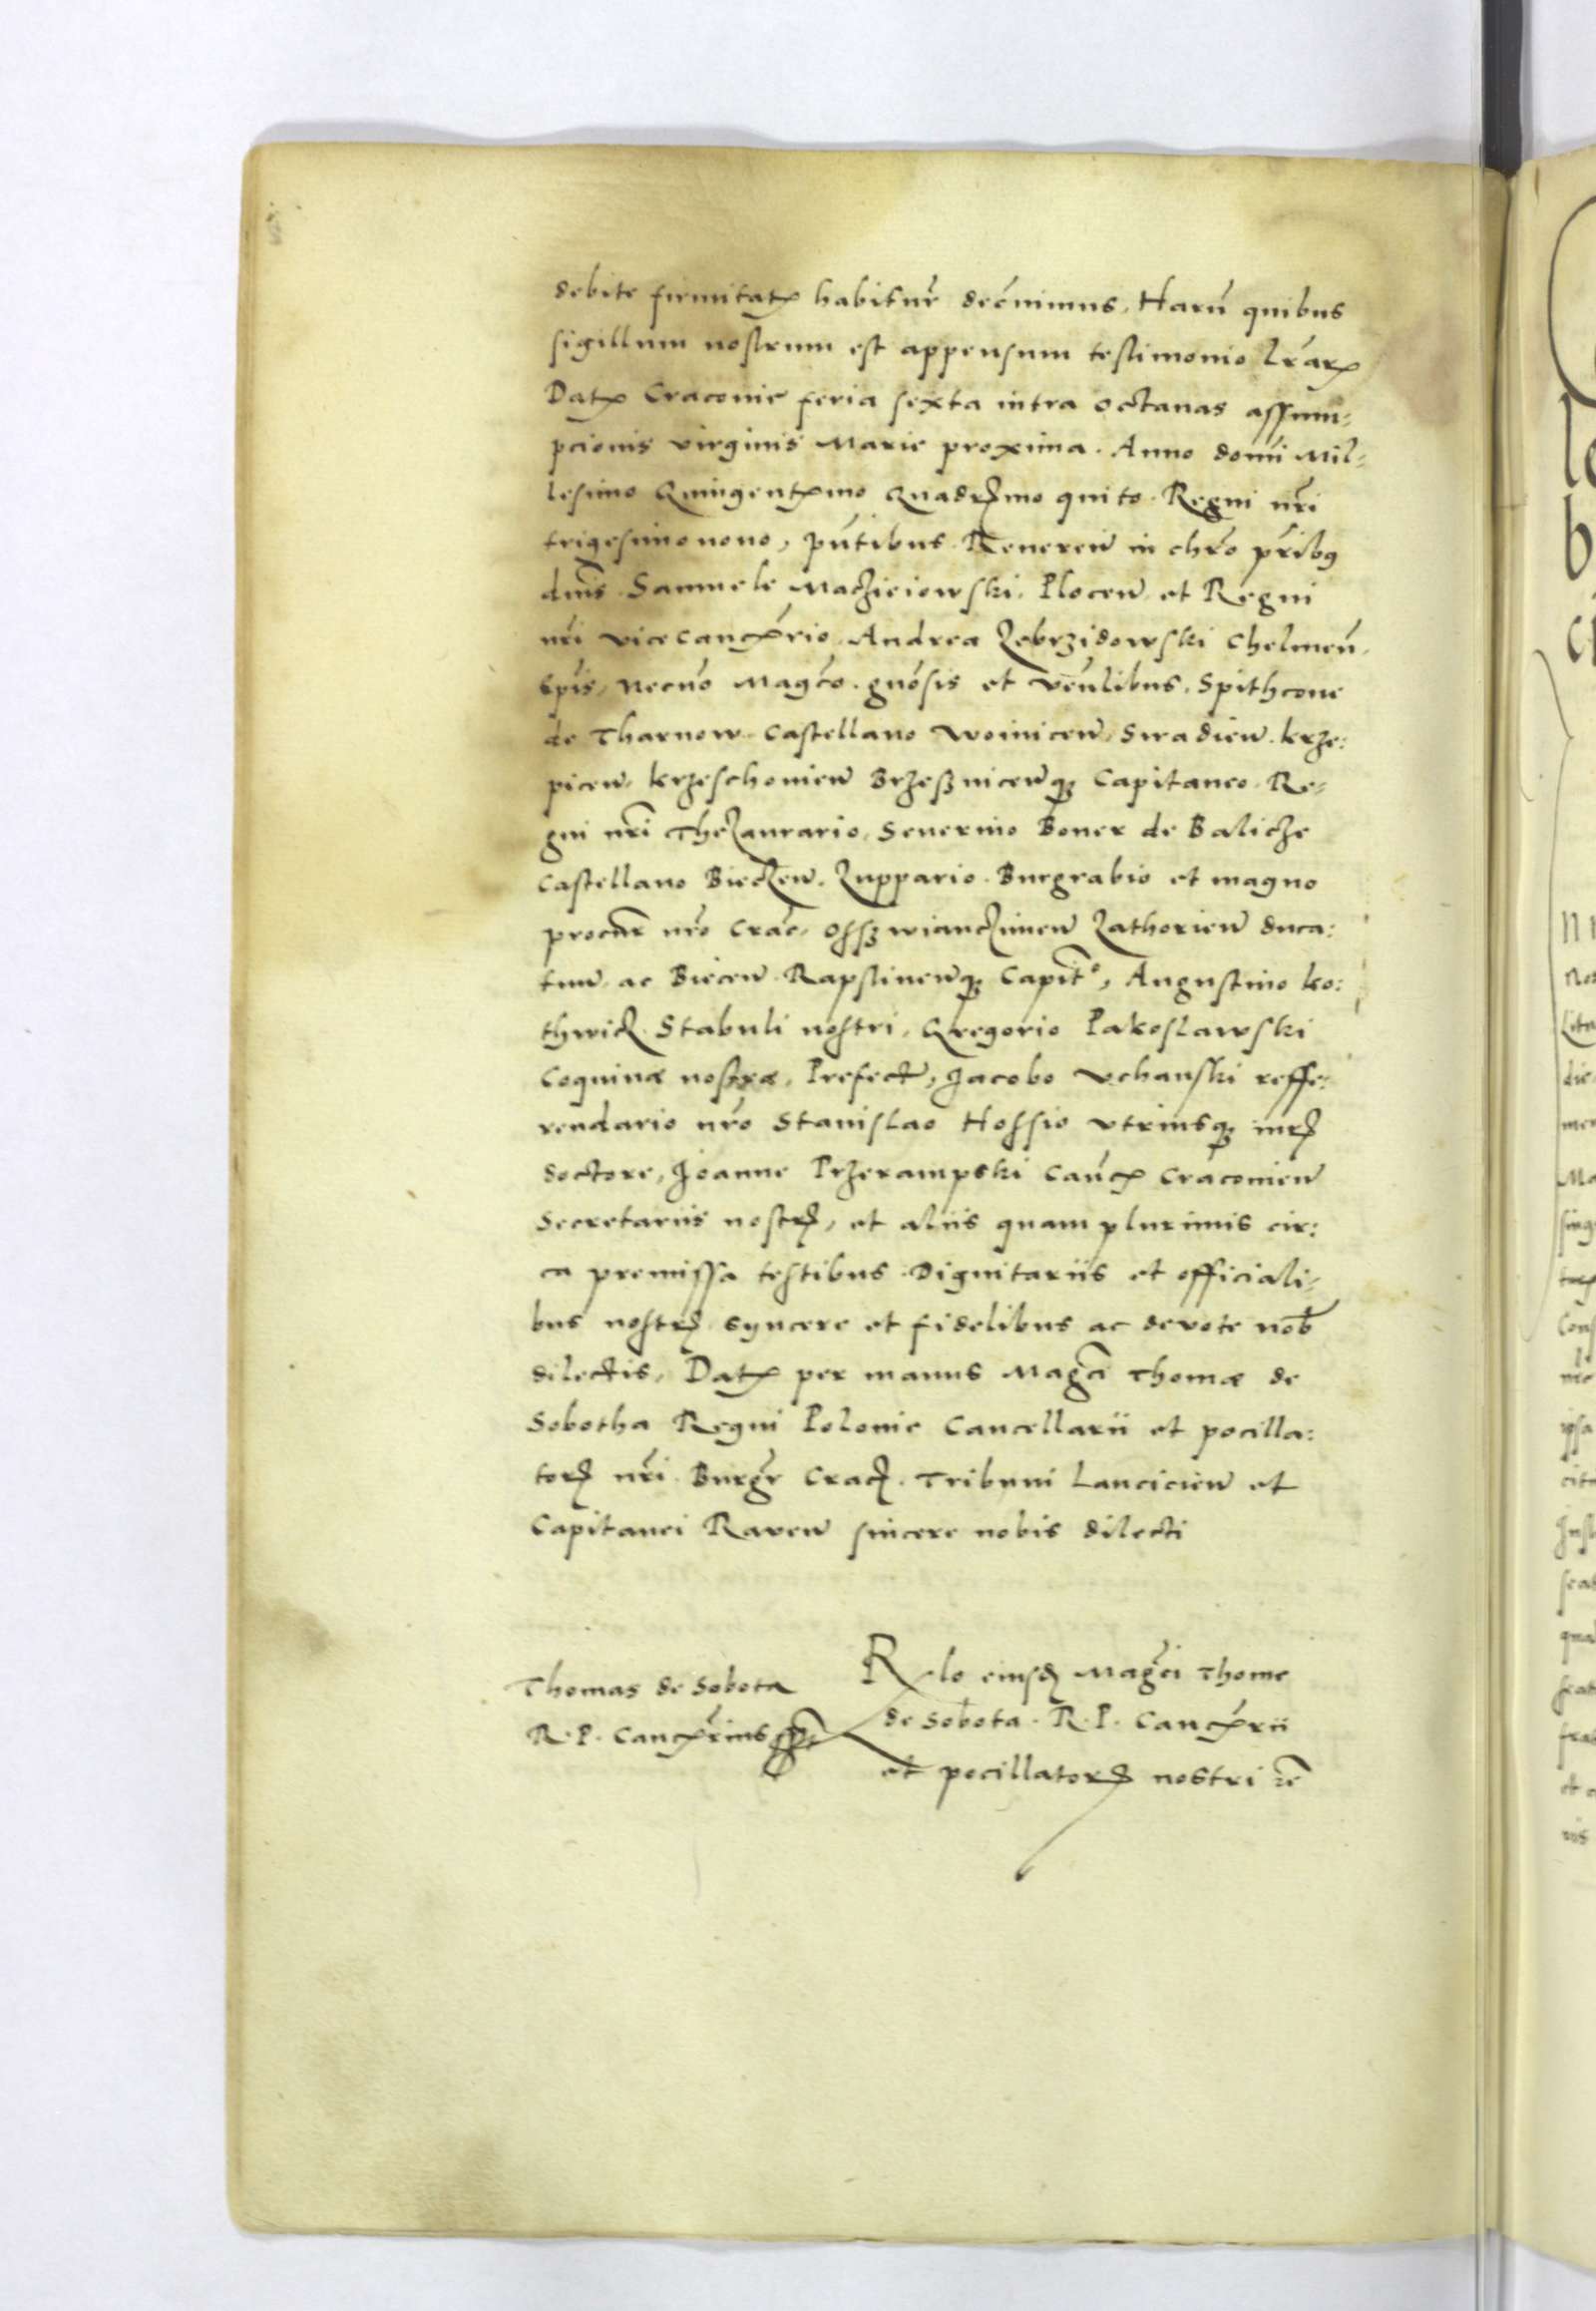 debite firmitatꝭ habitur̃ decñimus, Harũ quibus
sigillum nostrum est appensum testimonio lr̃arꝭ
Datꝭ Craconie feria sexta intra octauas assum-
pcionis virginis Marie proxima. Anno domĩ Mil-
lesimo Quingentꝭmo Quadrꝭmo quĩto. Regni nr̃i
trigesimo nono, pñtibus Reueren̄ in chr̃o pr̃ibꝯ
dnĩs. Samuele Maczieiowski, Plocen̄ et Regni
nr̃i vicecancꝭrio Andrea Zebrzidowski Chelmen̄.
Ep̃is, necnõ Magco. gnõsis et veñlibus. Spithcone
de Tharnow Castellano Woinicen̄, Siradien̄. krze:
picen̄, krzeschouien̄ Brzeßnicen̄qꝫ Capitaneo. Re-
gni nr̃i Thezaurario, Seuerino Boner de Balicze
Castellano Bieczen̄. Zuppario. Burgrabio et magno
procur̃ nr̃o Crac̃. Ossz wianczimen̄ Zathorien̄ duca:
tuu̅. ac Biecen̄ Rapstinen̄qꝫ Capit̃º, Augustino ko:
thwicz Stabuli nostri, Gregorio Pakoslawski
Coquinæ nostræ, Prefect̃, Jacobo Vchanski reffe:
rendario nr̃o Stanislao Hossio vtriusqꝫ iurꝭ
doctore, Joanne Przerampski Cancꝭ Craconien̄
Secretariis nostrꝭ, et aliis quam plurimis cir:
ca premissa testibus Dignitariis et officiali-
bus nostrꝭ syncere et fidelibus ac deuote nob̃
dilectis, Datꝭ per manus Magci Thomæ de
Sobotha Regni Polonie Cancellarii et pocilla:
torꝭ nr̃i Burgr̃ Cracꝭ. Tribuni Lancicien̄ et
Capitanei Rauen̄ sincere nobis dilecti
Thomas de Sobota
R. P. Cancꝭrius sspt
Relo eiusdꝭ Magci Thome
de Sobota. R. P. Cancꝭrii
et pocillatorꝭ nostri